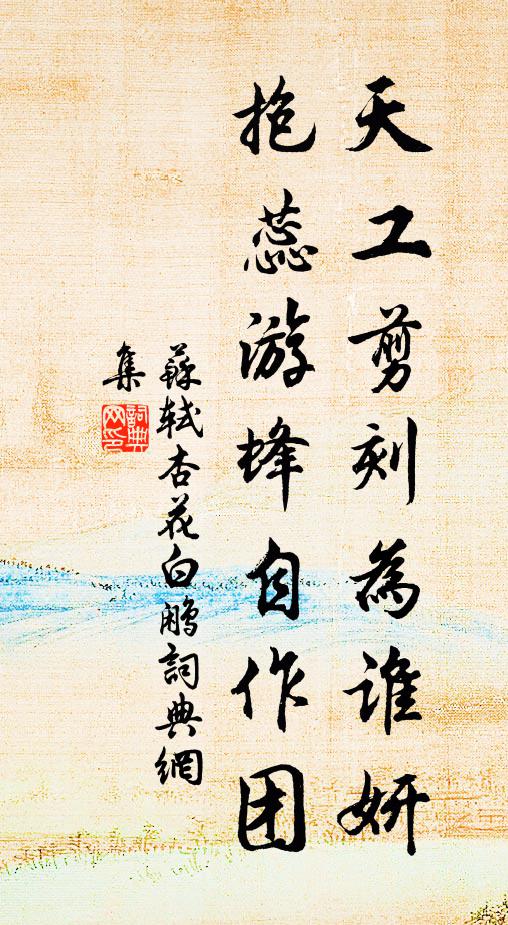 天工剪刻為誰妍
抱蕊游蜂自作团
蘇轼杏花白鹇詞典網
集
詞典网印